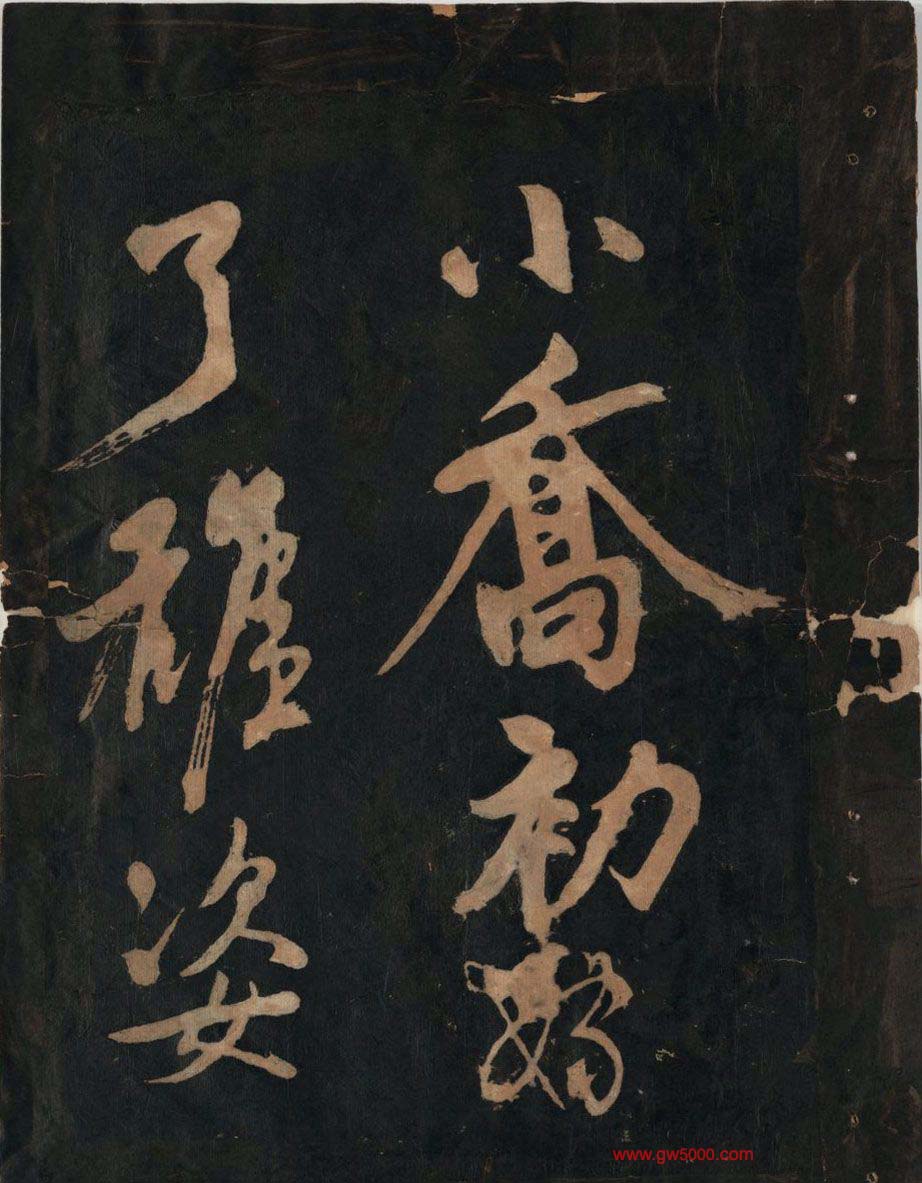 小喬初嫁
了雄姿
www.gw5000.com